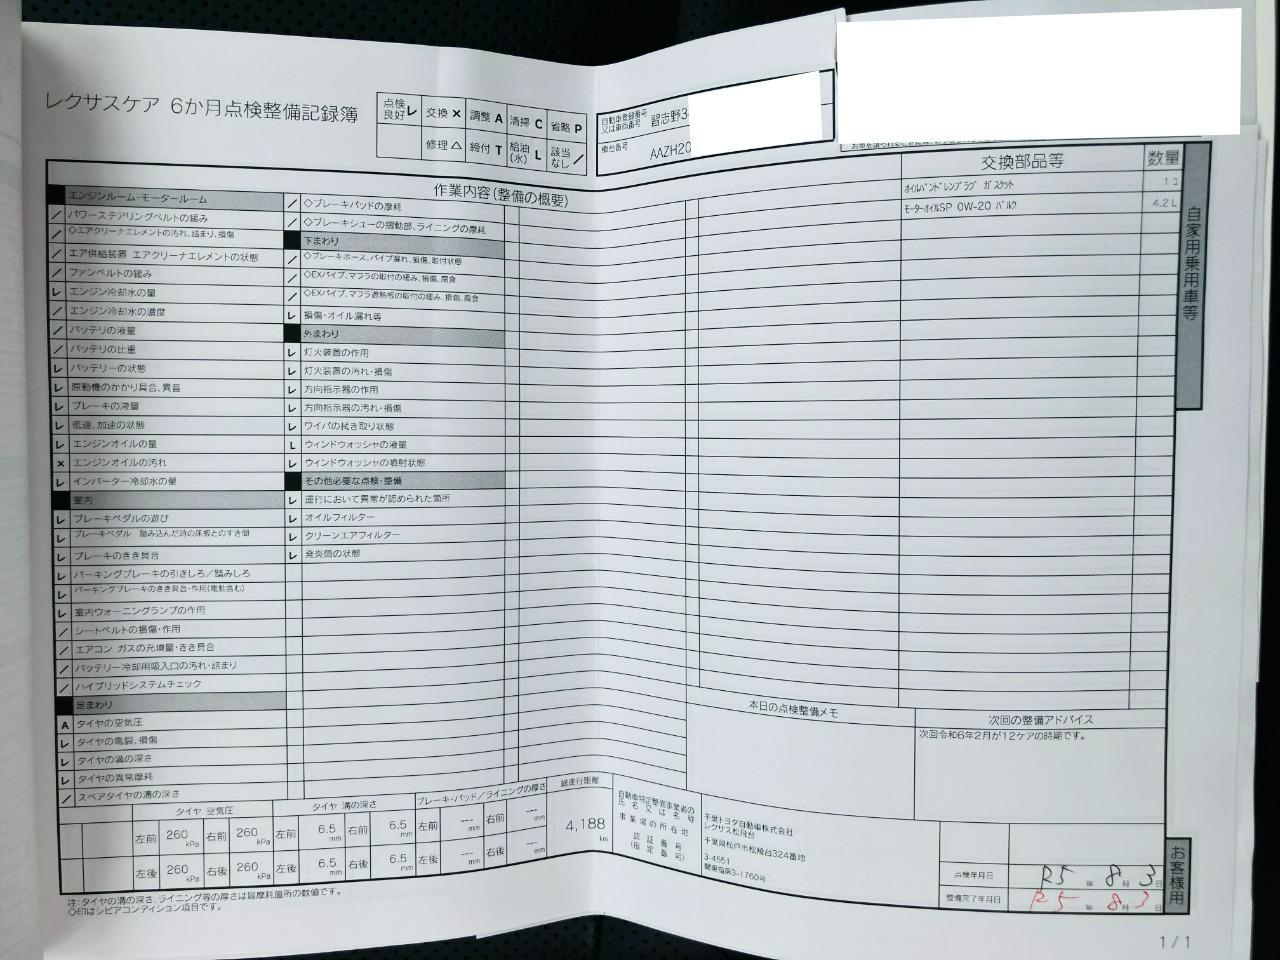 レクサスケア 6か月点検整備記録簿
点検良好 レ 交換 × 調整 A 清掃 C 省略 P
修理 △ 締付 T 給油(水) L 該当なし ／
自動車登録番号又は車両番号 習志野3
車台番号 AAZH20
作業内容(整備の概要)
交換部品等 数量
オイルパンドレンプラグ ガスケット 1コ
モーターオイルSP 0W-20 バルク 4.2L
自家用乗用車等
エンジンルーム・モータールーム
／ パワーステアリングベルトの緩み
／ ◇エアクリーナエレメントの汚れ、詰まり、損傷
／ エア供給装置 エアクリーナエレメントの状態
／ ファンベルトの緩み
レ エンジン冷却水の量
／ エンジン冷却水の濃度
／ バッテリの液量
／ バッテリの比重
レ バッテリーの状態
レ 原動機のかかり具合、異音
レ ブレーキの液量
レ 低速、加速の状態
レ エンジンオイルの量
× エンジンオイルの汚れ
レ インバーター冷却水の量
室内
レ ブレーキペダルの遊び
レ ブレーキペダル 踏み込んだ時の床板とのすき間
レ ブレーキのきき具合
レ パーキングブレーキの引きしろ／踏みしろ
レ パーキングブレーキのきき具合・作用(電動含む)
レ 室内ウォーニングランプの作用
／ シートベルトの損傷・作用
／ エアコン ガスの充填量・きき具合
／ バッテリー冷却用吸入口の汚れ・詰まり
／ ハイブリッドシステムチェック
足まわり
A タイヤの空気圧
レ タイヤの亀裂、損傷
レ タイヤの溝の深さ
レ タイヤの異常摩耗
／ スペアタイヤの溝の深さ
／ ◇ブレーキパッドの摩耗
／ ◇ブレーキシューの摺動部、ライニングの摩耗
下まわり
／ ◇ブレーキホース、パイプ漏れ、損傷、取付状態
／ ◇EXパイプ、マフラの取付の緩み、損傷、腐食
／ ◇EXパイプ、マフラ遮熱板の取付の緩み、損傷、腐食
レ 損傷・オイル漏れ等
外まわり
レ 灯火装置の作用
レ 灯火装置の汚れ・損傷
レ 方向指示器の作用
レ 方向指示器の汚れ・損傷
レ ワイパの拭き取り状態
L ウィンドウォッシャの液量
レ ウィンドウォッシャの噴射状態
その他必要な点検・整備
レ 運行において異常が認められた箇所
レ オイルフィルター
レ クリーンエアフィルター
レ 発炎筒の状態
本日の点検整備メモ
次回の整備アドバイス
次回令和6年2月が12ケアの時期です。
タイヤ 空気圧 タイヤ 溝の深さ ブレーキ・パッド／ライニングの厚さ 総走行距離
左前 260 kPa 右前 260 kPa 左前 6.5 mm 右前 6.5 mm 左前 --- mm 右前 --- mm 4,188 km
左後 260 kPa 右後 260 kPa 左後 6.5 mm 右後 6.5 mm 左後 --- mm 右後 --- mm
自動車特定整備事業者の氏名又は名称
事業場の所在地
認証番号
(指定番号)
千葉トヨタ自動車株式会社
レクサス松飛台
千葉県松戸市松飛台324番地
3-4551
関東指第3-1760号
点検年月日 R5 年 8 月 3 日
整備完了年月日 R5 年 8 月 3 日
お客様用
注：タイヤの溝の深さ、ライニング等の厚さは最摩耗箇所の数値です。
◇印はシビアコンディション項目です。
1 / 1